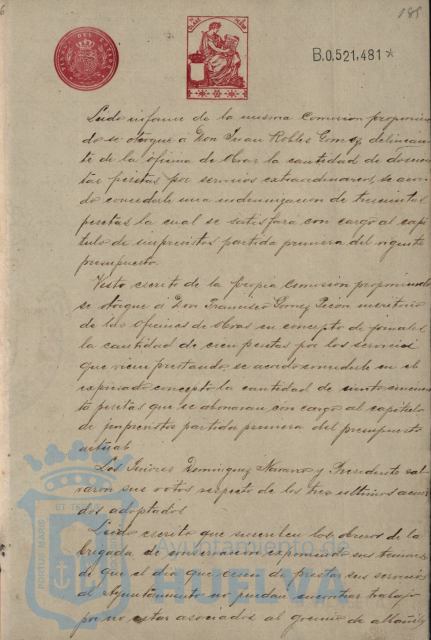 185
B.0.521,481*
Leido informe de la misma Comision proponien
do se otorgue á Don Juan Robles Gomez, delinean
te de la oficina de Obras la cantidad de doscien
tas pesetas por servicios extraordinarios, se acor
dó concederle una indemnizacion de trescientas
pesetas la cual se satisfará con cargo al capi
tulo de imprevistos partida primera del vigente
presupuesto.
Visto escrito de la propia Comision proponiendo
se otorgue á Don Francisco Gomez meritorio
de las oficinas de Obras en concepto de jornales
la cantidad de cien pesetas por los servicios
que viene prestando, se acordó concederle en el
expresado concepto la cantidad de ciento cincuen
ta pesetas que se abonaran con cargo al capitulo
de imprevistos partida primera del presupuesto
actual.
Los Señores Dominguez Navarro y Presidente sal
varon sus votos respecto de los tres ultimos acuer
dos adoptados
Leido escrito que suscriben los obreros de la
brigada de conservacion exponiendo sus temores
de que el dia que cesen de prestar sus servicios
al Ayuntamiento no puedan encontrar trabajo
por no estar asociados al gremio de albañiles
Ayuntamiento de
HUELVA
PORTUS MARIS
ET TERRAE